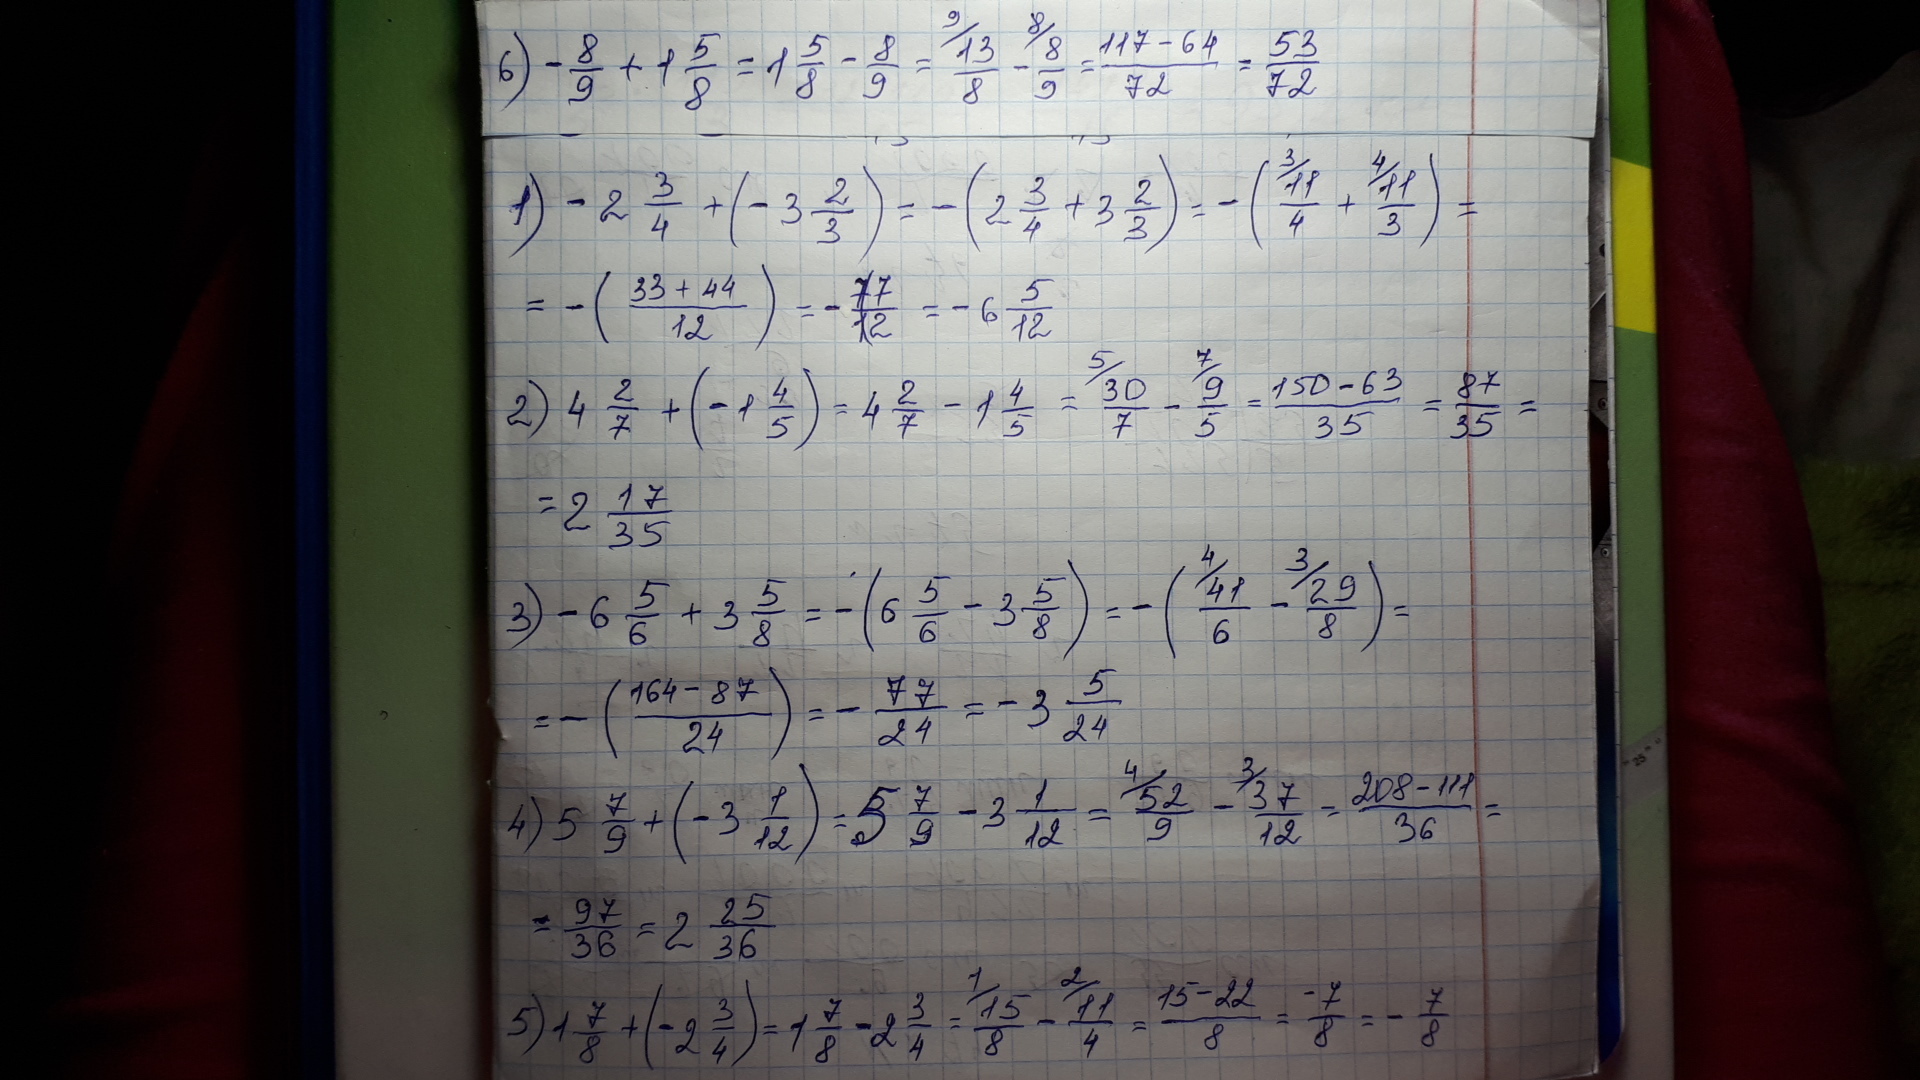 6) - 8/9 + 1 5/8 = 1 5/8 - 8/9 = 9/ 13/8 - 8/ 8/9 = 117-64/72 = 53/72
1) - 2 3/4 + (- 3 2/3) = - (2 3/4 + 3 2/3) = - (3/ 11/4 + 4/ 11/3) =
= - (33+44/12) = - 77/12 = - 6 5/12
2) 4 2/7 + (- 1 4/5) = 4 2/7 - 1 4/5 = 5/ 30/7 - 7/ 9/5 = 150-63/35 = 87/35 =
= 2 17/35
3) - 6 5/6 + 3 5/8 = - (6 5/6 - 3 5/8) = - (4/ 41/6 - 3/ 29/8) =
= - (164-87/24) = - 77/24 = - 3 5/24
4) 5 7/9 + (- 3 1/12) = 5 7/9 - 3 1/12 = 4/ 52/9 - 3/ 37/12 = 208-111/36 =
= 97/36 = 2 25/36
5) 1 7/8 + (- 2 3/4) = 1 7/8 - 2 3/4 = 1/ 15/8 - 2/ 11/4 = 15-22/8 = -7/8 = - 7/8